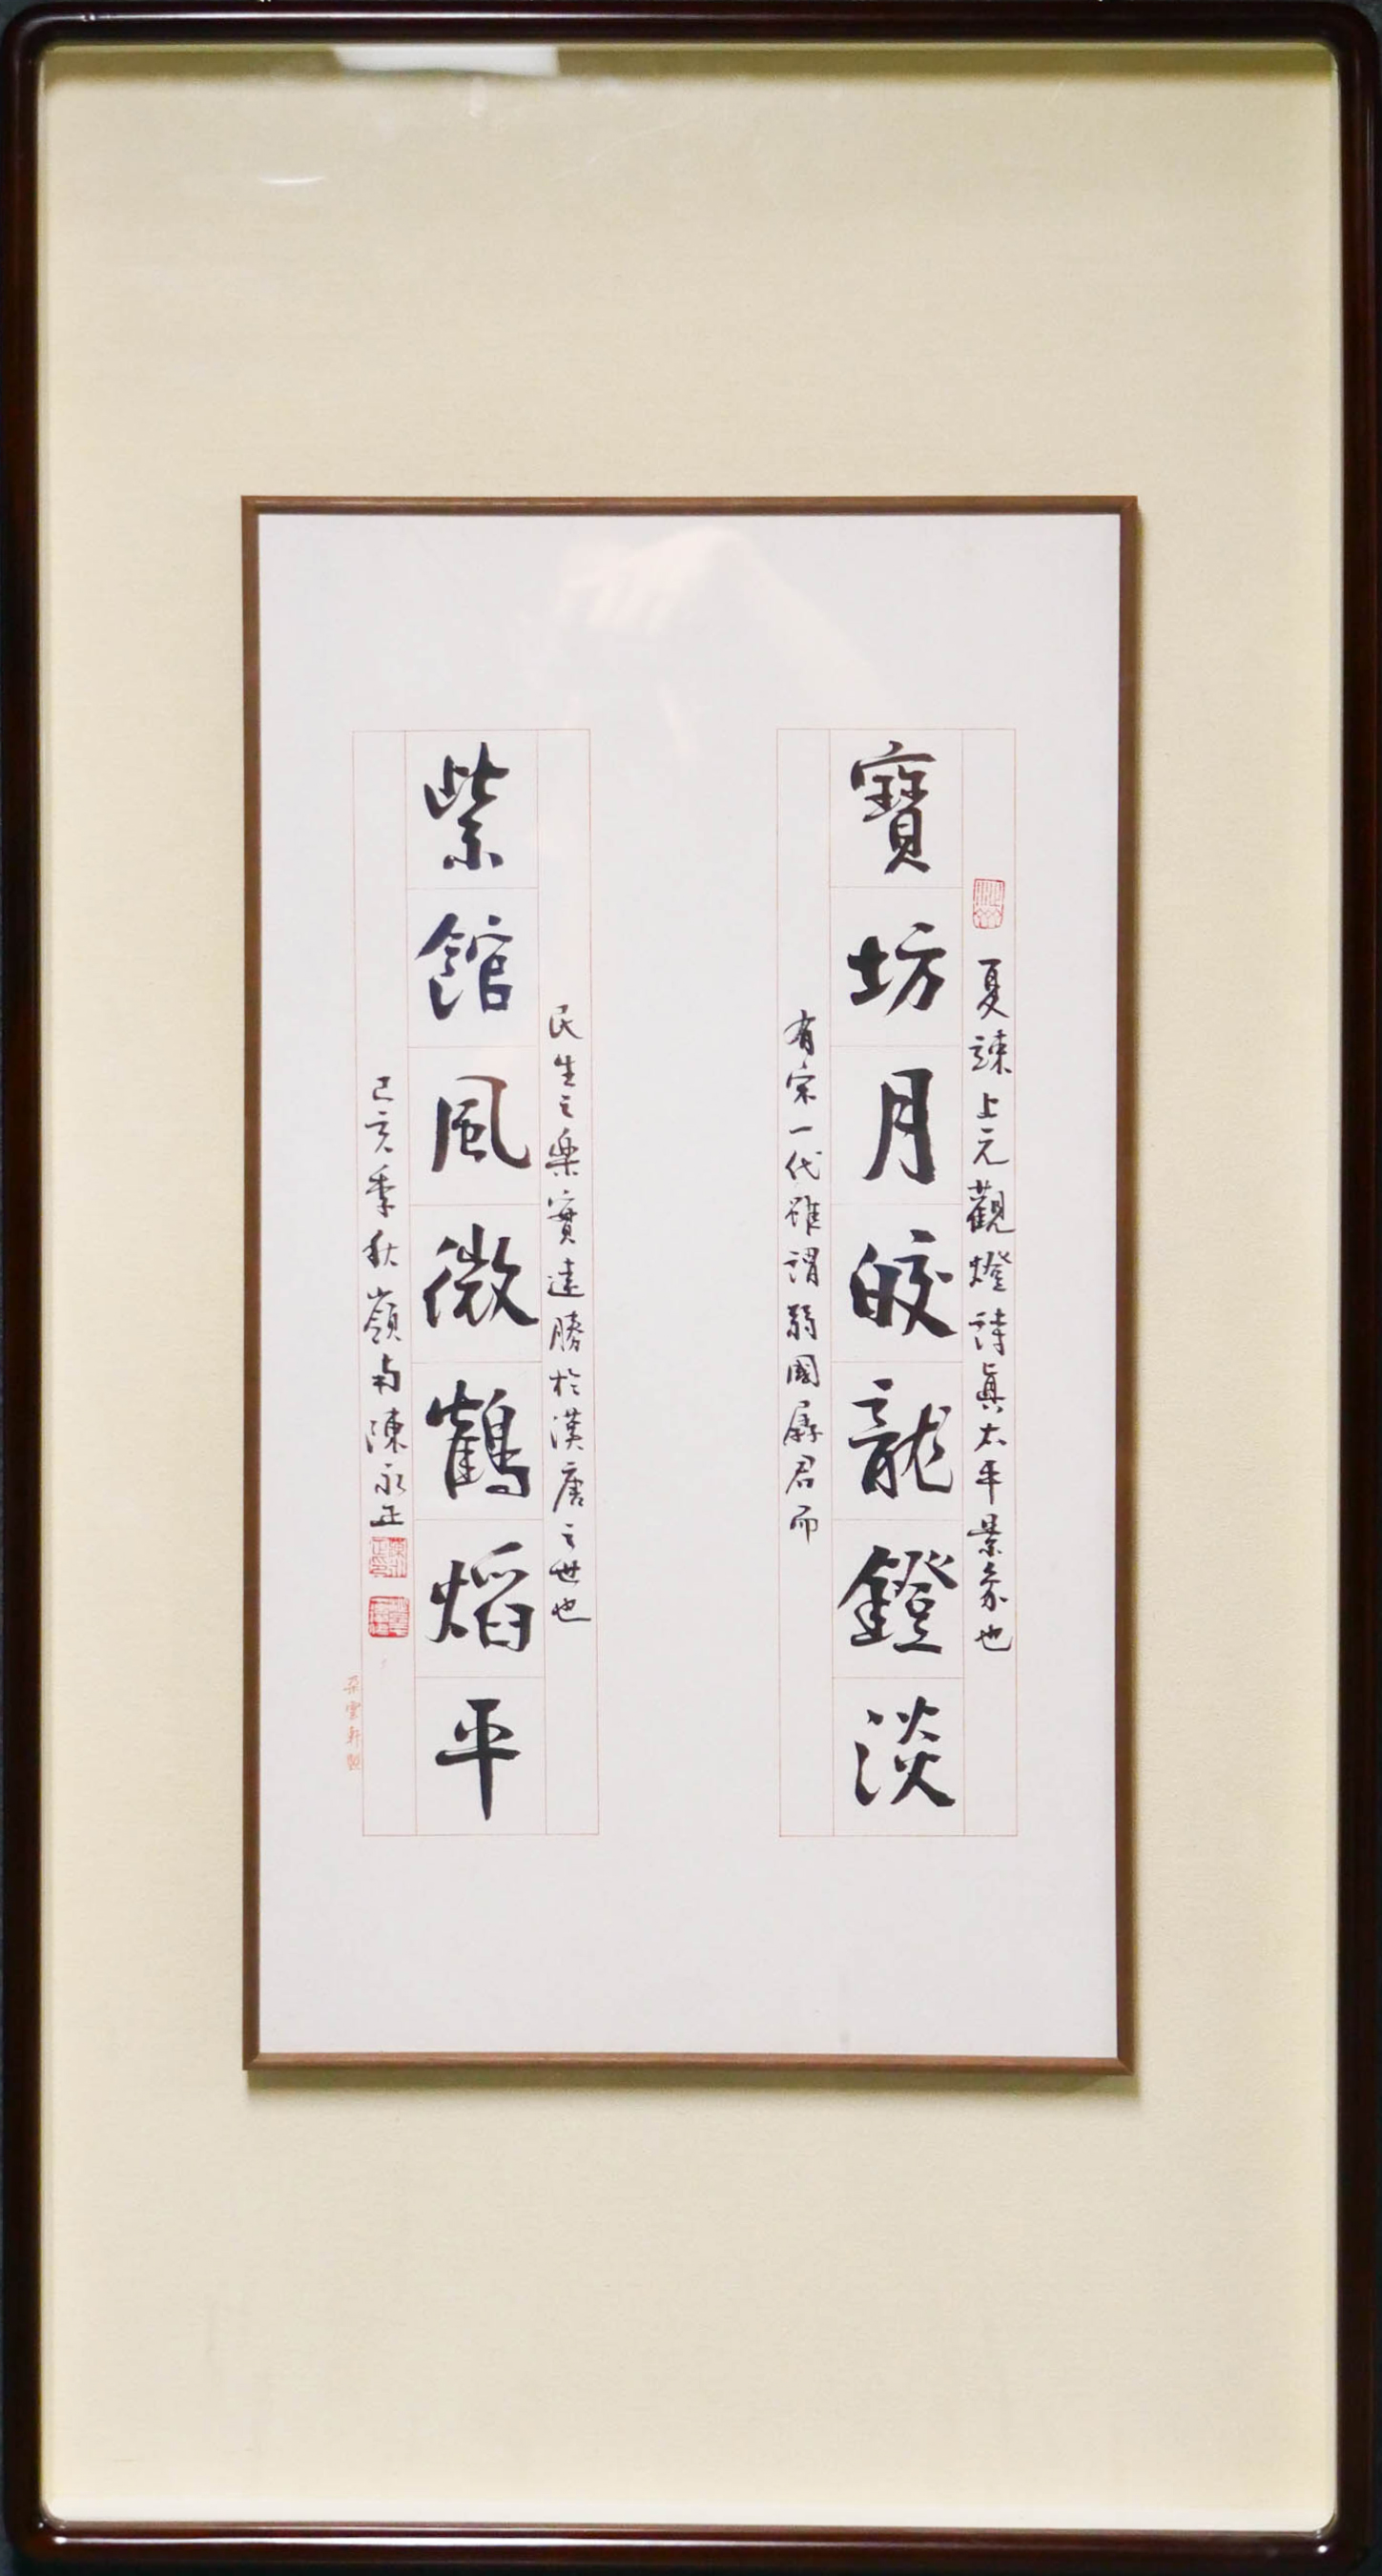 夏竦上元觀燈詩真太平景象也
寶坊月皎龍鐙淡
有宋一代雖謂弱國孱君而
民生之樂實遠勝於漢唐之世也
紫館風微鶴熖平
己亥季秋嶺南陳永正
朵雲軒製